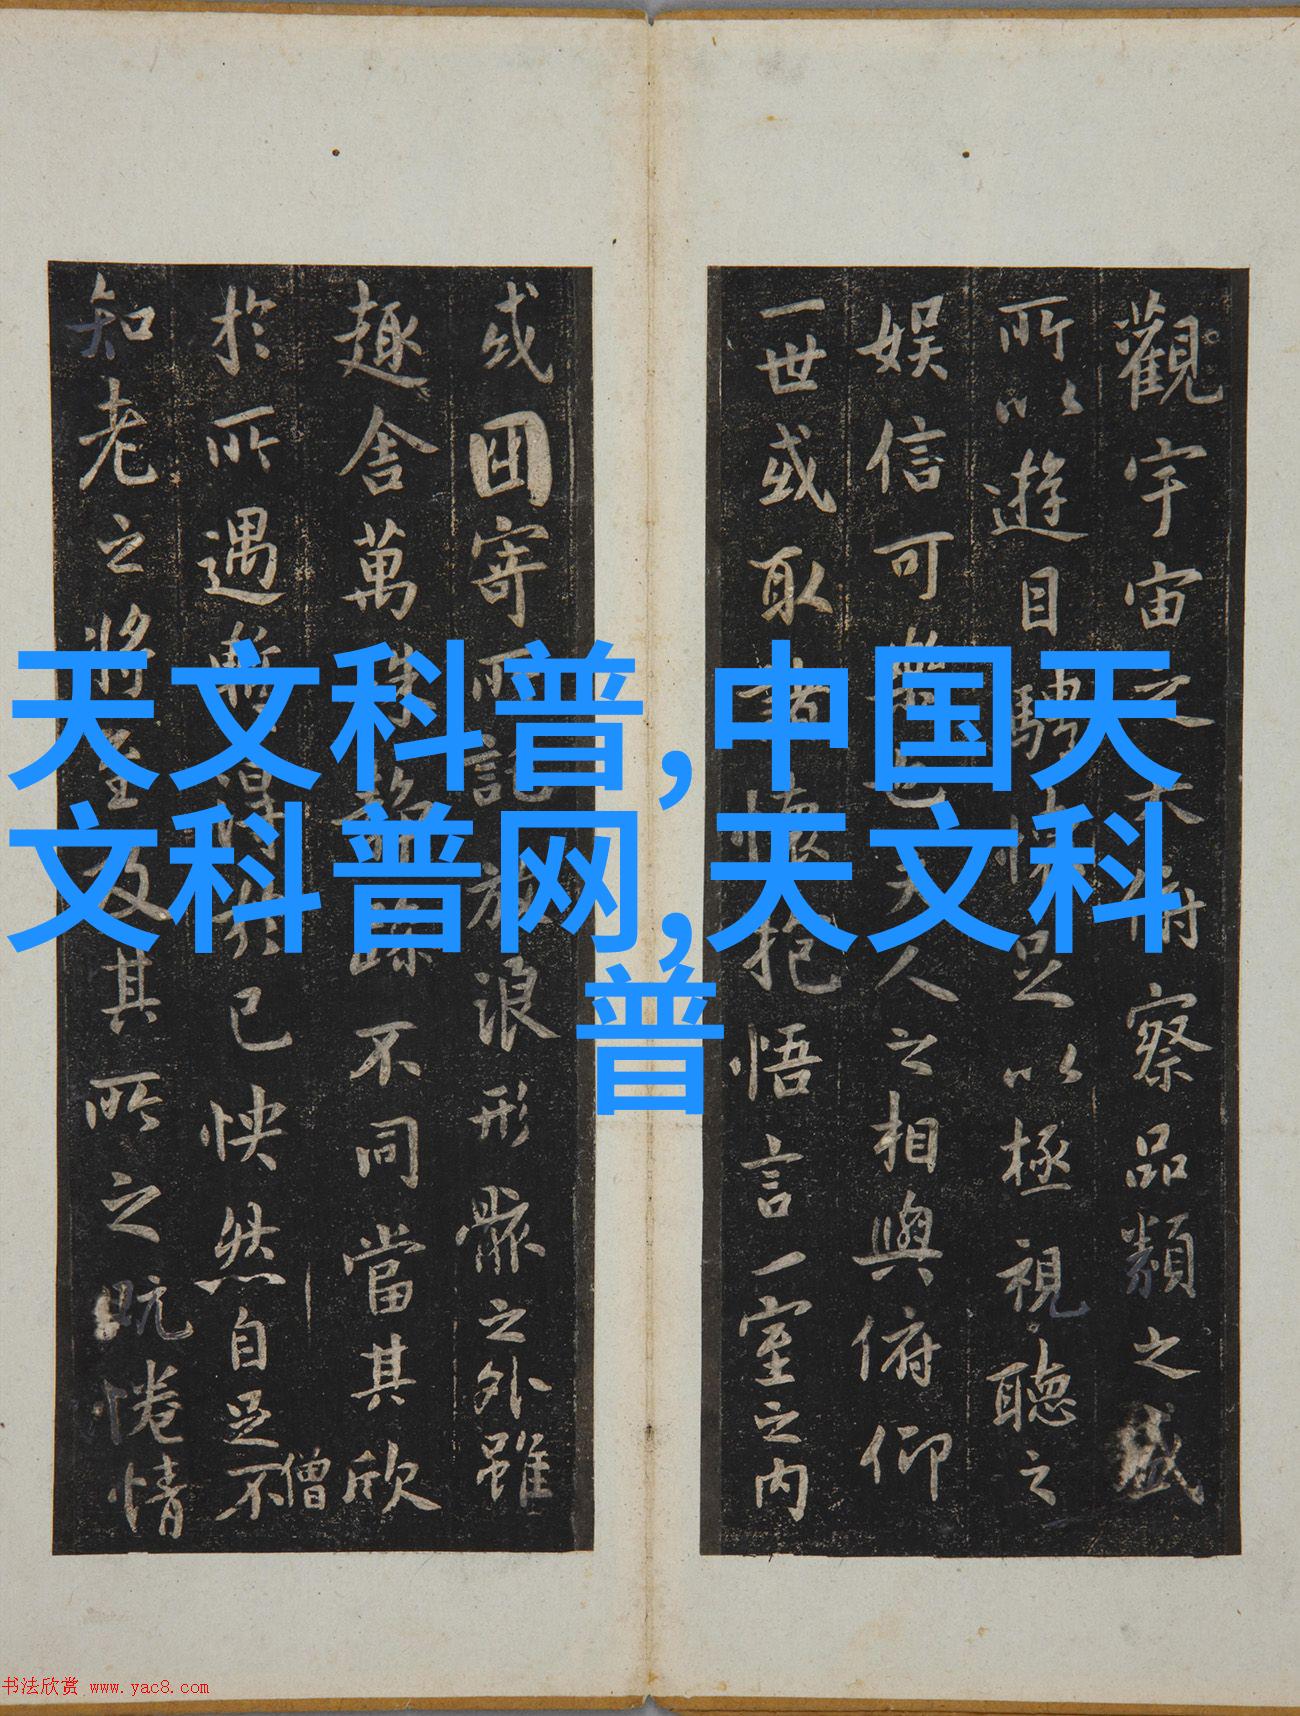 天文科普,中国天
文科普网,天文科
普
觀宇宙之大俯察品類之盛
所以遊目騁懷足以極視聽之
娛信可樂也夫人之相與俯仰
一世或取諸懷抱悟言一室之內
或因寄所託放浪形骸之外雖
趣舍萬殊靜躁不同當其欣
於所遇暫得於己快然自足不
僧
知老之將至及其所之既惓情
书法欣赏 www.yac8.com